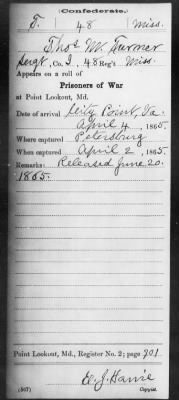 Confederate.
T. 48 Miss.
Thos. W. Turner
Sergt, Co. I, 48 Reg't Miss.
Appears on a roll of
Prisoners of War
at Point Lookout, Md.
Date of arrival City Point, Va.
April 4, 1865.
Where captured Petersburg
When captured April 2, 1865.
Remarks: Released June 20.
1865.
Point Lookout, Md., Register No. 2; page 201
(567) Copyist.